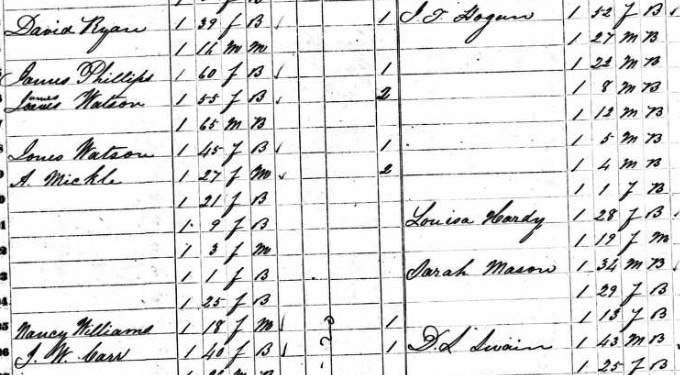 David Ryan 1 39 f B 1
1 16 m M
James Phillips 1 60 f B 1
James Watson 1 55 f B 2
1 65 M B
Jones Watson 1 45 f B 1
A. Mickle 1 27 f M 2
1 21 f B
1 9 f B
1 3 f M
1 1 f B
1 25 f B
Nancy Williams 1 18 f M 1
J. W. Carr 1 40 f B 1
J. T. Hogun 1 52 f B
1 27 M B
1 22 M B
1 8 M B
1 12 M B
1 5 M B
1 4 M B
1 1 f B
Louisa Hardy 1 28 f B
1 19 f M
Sarah Mason 1 34 M B
1 29 f B
1 13 f B
D. L. Swain 1 43 M B
1 25 f B